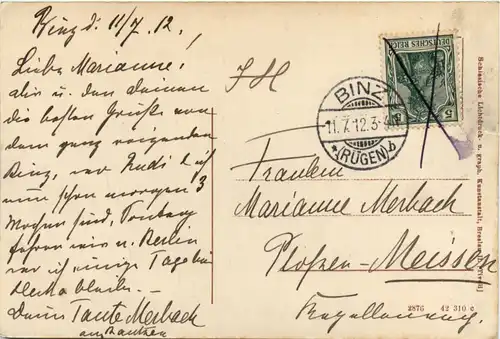 Binz d. 11/7. 12.
Liebe Marianne!
Dir u. den Deinen
die besten Grüße von
dem ganz reizenden
Binz, wo Rudi & ich
nun schon morgen 3
Wochen sind, Sonntag
fahren wir n. Berlin
wo ich einige Tage bei
bleibe.
Deine Tante Merbach
aus Bautzen
DEUTSCHES REICH
5
BINZ
11.7.12.3-
*(RÜGEN) b
Fräulein
Marianne Merbach
Meissen
Schlesische Lichtdruck- u. graph. Kunstanstalt, Breslau
2876 42 310 c